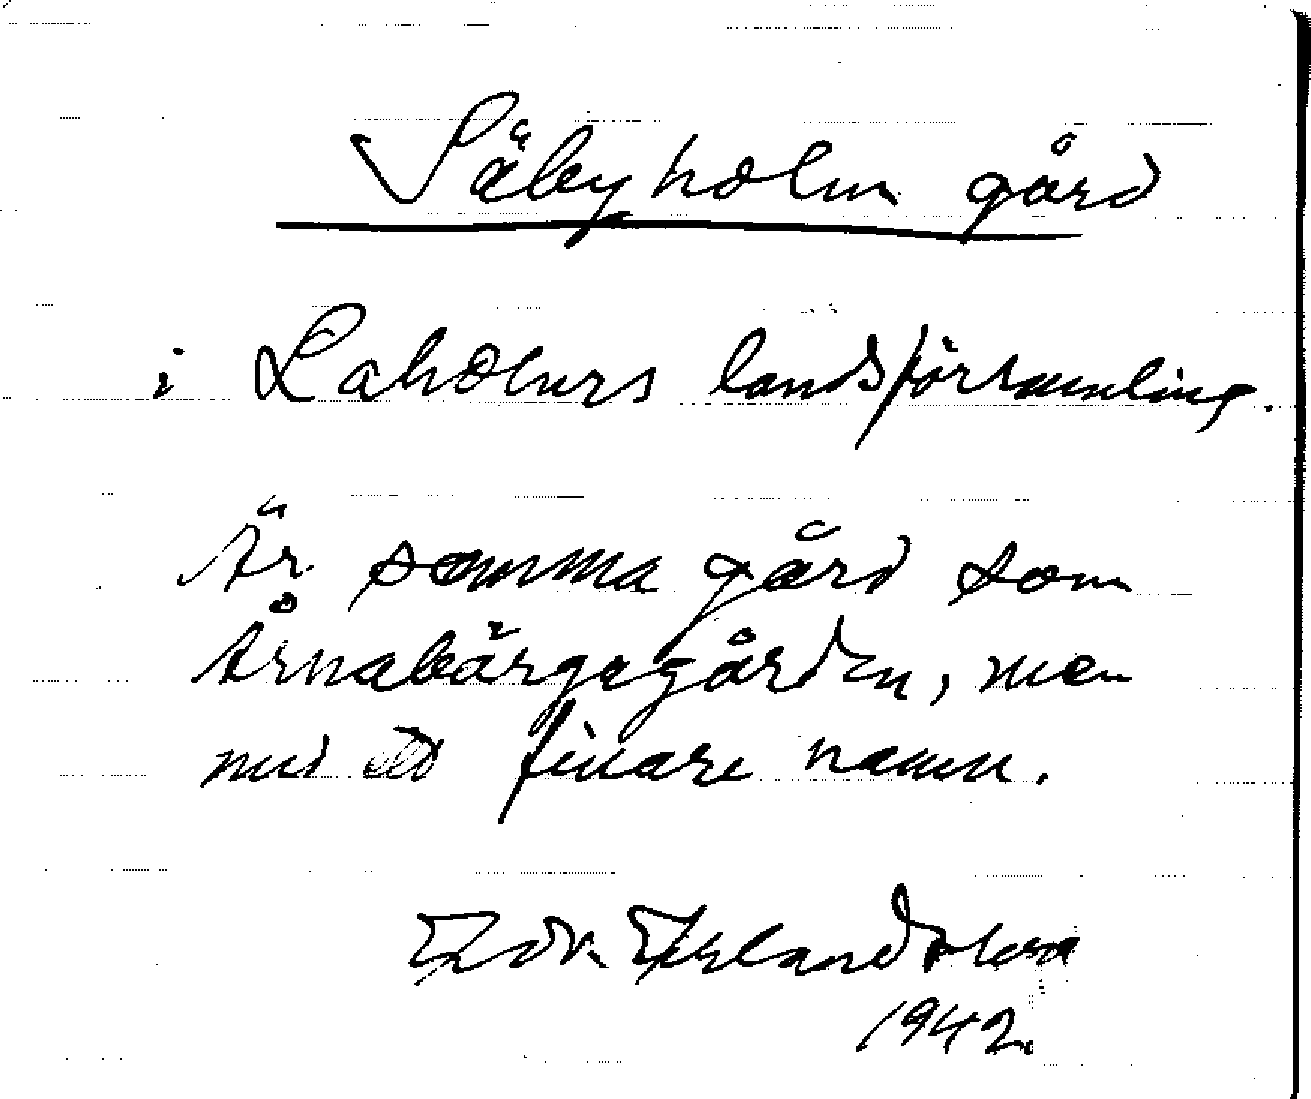 Säbyholm gård
i Laholms landsförsamling.
Är samma gård som
Årnabärgagården, men
med ett finare namn.
Edv. Erlandsson
1942.